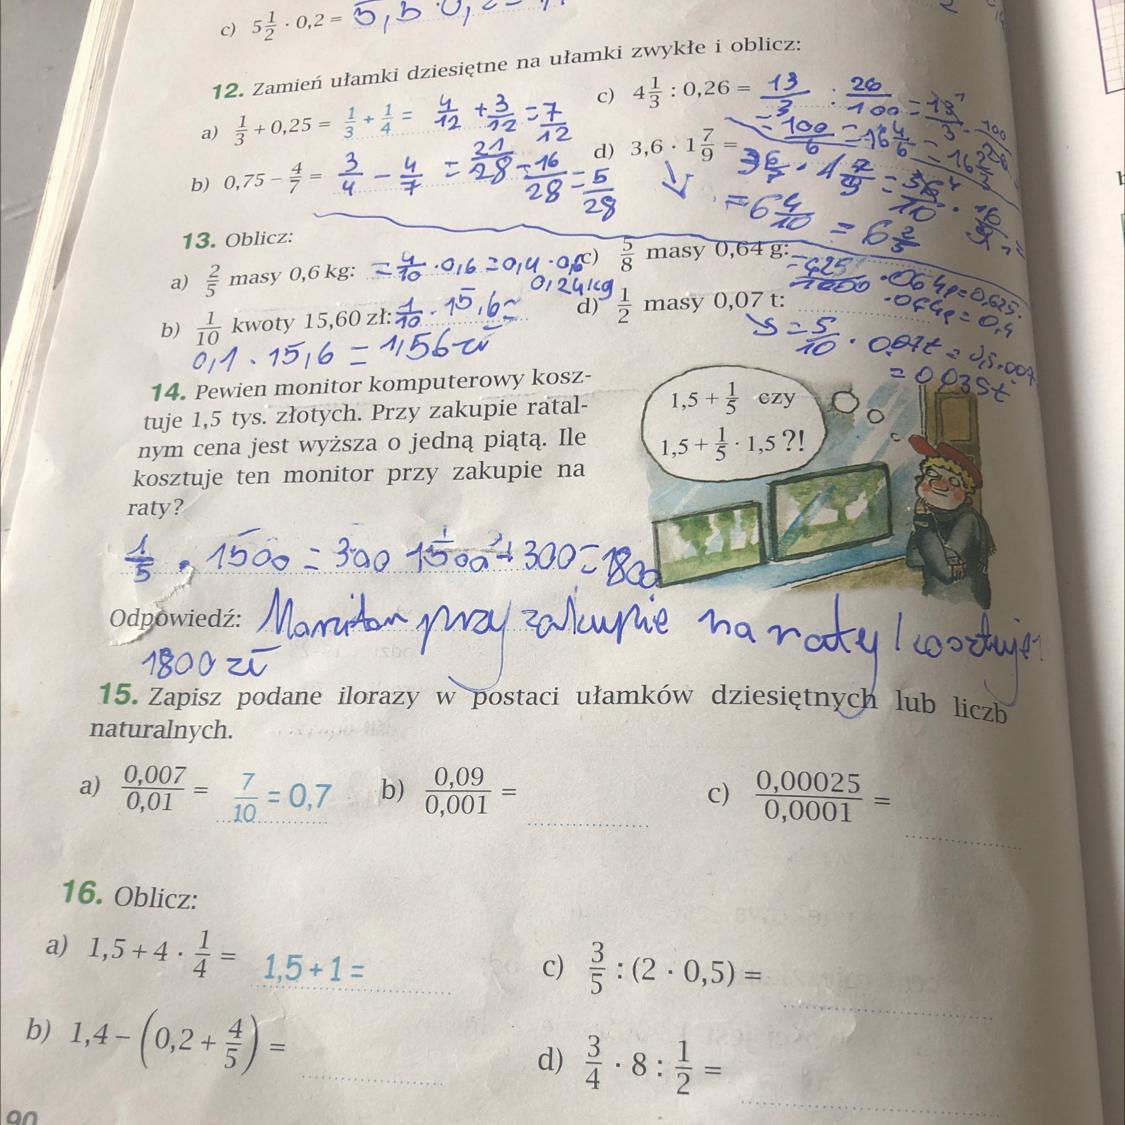 c) 5 1/2 · 0,2 = 5,5 · 0,2
12. Zamień ułamki dziesiętne na ułamki zwykłe i oblicz:
a) 1/3 + 0,25 = 1/3 + 1/4 = 4/12 + 3/12 = 7/12
c) 4 1/3 : 0,26 = 13/3 : 26/100 =
= 100/6 = 16 4/6 = 16 2/3
b) 0,75 – 4/7 = 3/4 – 4/7 = 21/28 – 16/28 = 5/28
d) 3,6 · 1 7/9 =
= 6 4/10 = 6 2/5
13. Oblicz:
a) 2/5 masy 0,6 kg: = 4/10 · 0,6 = 0,4 · 0,6
0,24 kg
c) 5/8 masy 0,64 g:
= 0,4
b) 1/10 kwoty 15,60 zł: 1/10 · 15,6 =
0,1 · 15,6 = 1,56 zł
d) 1/2 masy 0,07 t:
= 5/10 · 0,07t =
= 0,035t
14. Pewien monitor komputerowy kosz-
tuje 1,5 tys. złotych. Przy zakupie ratal-
nym cena jest wyższa o jedną piątą. Ile
kosztuje ten monitor przy zakupie na
raty?
1,5 + 1/5 czy
1,5 + 1/5 · 1,5 ?!
1/5 · 1500 = 300 1500 + 300 = 1800
Odpowiedź: Monitor przy zakupie na raty kosztuje
1800 zł
15. Zapisz podane ilorazy w postaci ułamków dziesiętnych lub liczb
naturalnych.
a) 0,007/0,01 = 7/10 = 0,7
b) 0,09/0,001 =
c) 0,00025/0,0001 =
16. Oblicz:
a) 1,5 + 4 · 1/4 = 1,5 + 1 =
c) 3/5 : (2 · 0,5) =
b) 1,4 – (0,2 + 4/5) =
d) 3/4 · 8 : 1/2 =
90